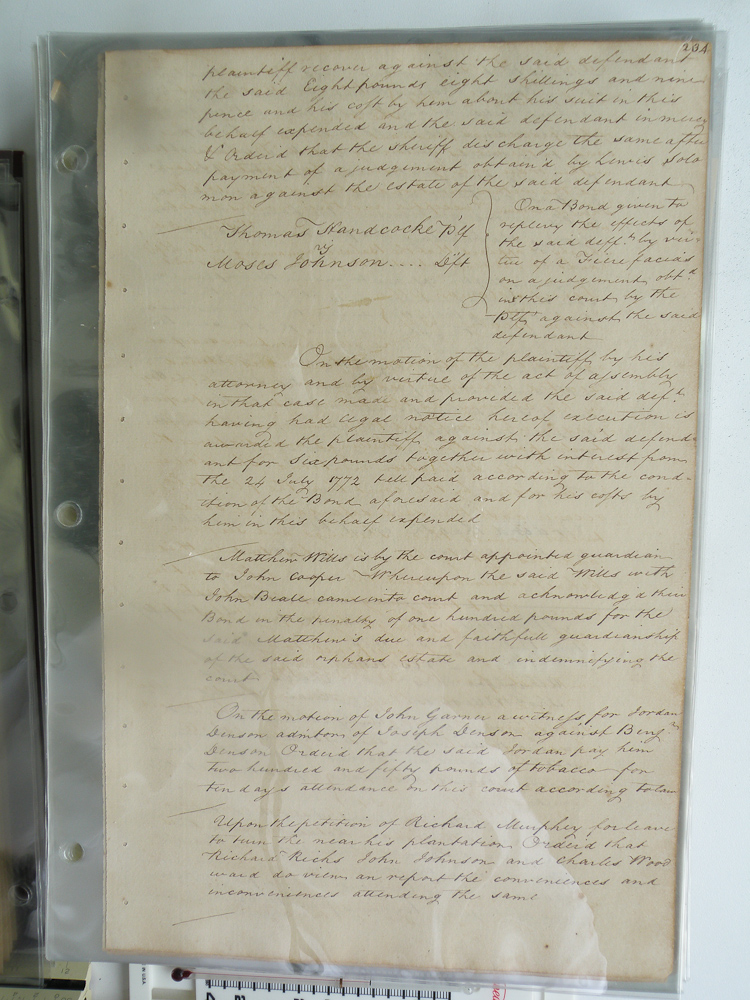 234
plaintiff recover against the said defendant
the said Eight pounds eight shillings and nine
pence and his cost by him about his suit in this
behalf expended and the said defendant in mercy
& Orderd that the sheriff discharge the same after
payment of a judgement obtain'd by Lewis Solo
mon against the estate of the said defendant
Thomas Handcocke Plf
vs
Moses Johnson .... Dft
On a Bond given to
replevy the effects of
the said deft. by vir-
tue of a Fiere facias
on a judgement obtd
in this court by the
Plf against the said
defendant
On the motion of the plaintiff by his
attorney and by virtue of the act of assembly
in that case made and provided the said deft.
having had legal notice hereof execution is
awarded the plaintiff against the said defend-
ant for Six pounds together with interest from
the 24 July 1772 till paid according to the cond-
ition of the Bond aforesaid and for his costs by
him in this behalf expended
Matthew Wills is by the court appointed guardian
to John Cooper Whereupon the said Wills with
John Beale came into court and acknowledgd their
Bond in the penalty of one hundred pounds for the
said Matthew's due and faithfull guardianship
of the said orphans estate and indemnifying the
court
On the motion of John Garner a witness for Jordan
Denson admtor of Joseph Denson against Benj.
Denson Orderd that the said Jordan pay him
two hundred and fifty pounds of tobacco for
ten days attendance on this court according to law
Upon the petition of Richard Murphey for leave
to turn the near his plantation Orderd that
Richard Ricks John Johnson and Charles Wood
ward do view an report the conveniences and
inconveniences attending the same